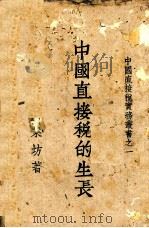 中國直接稅實務叢書之一
中國直接稅的生長
秉坊著